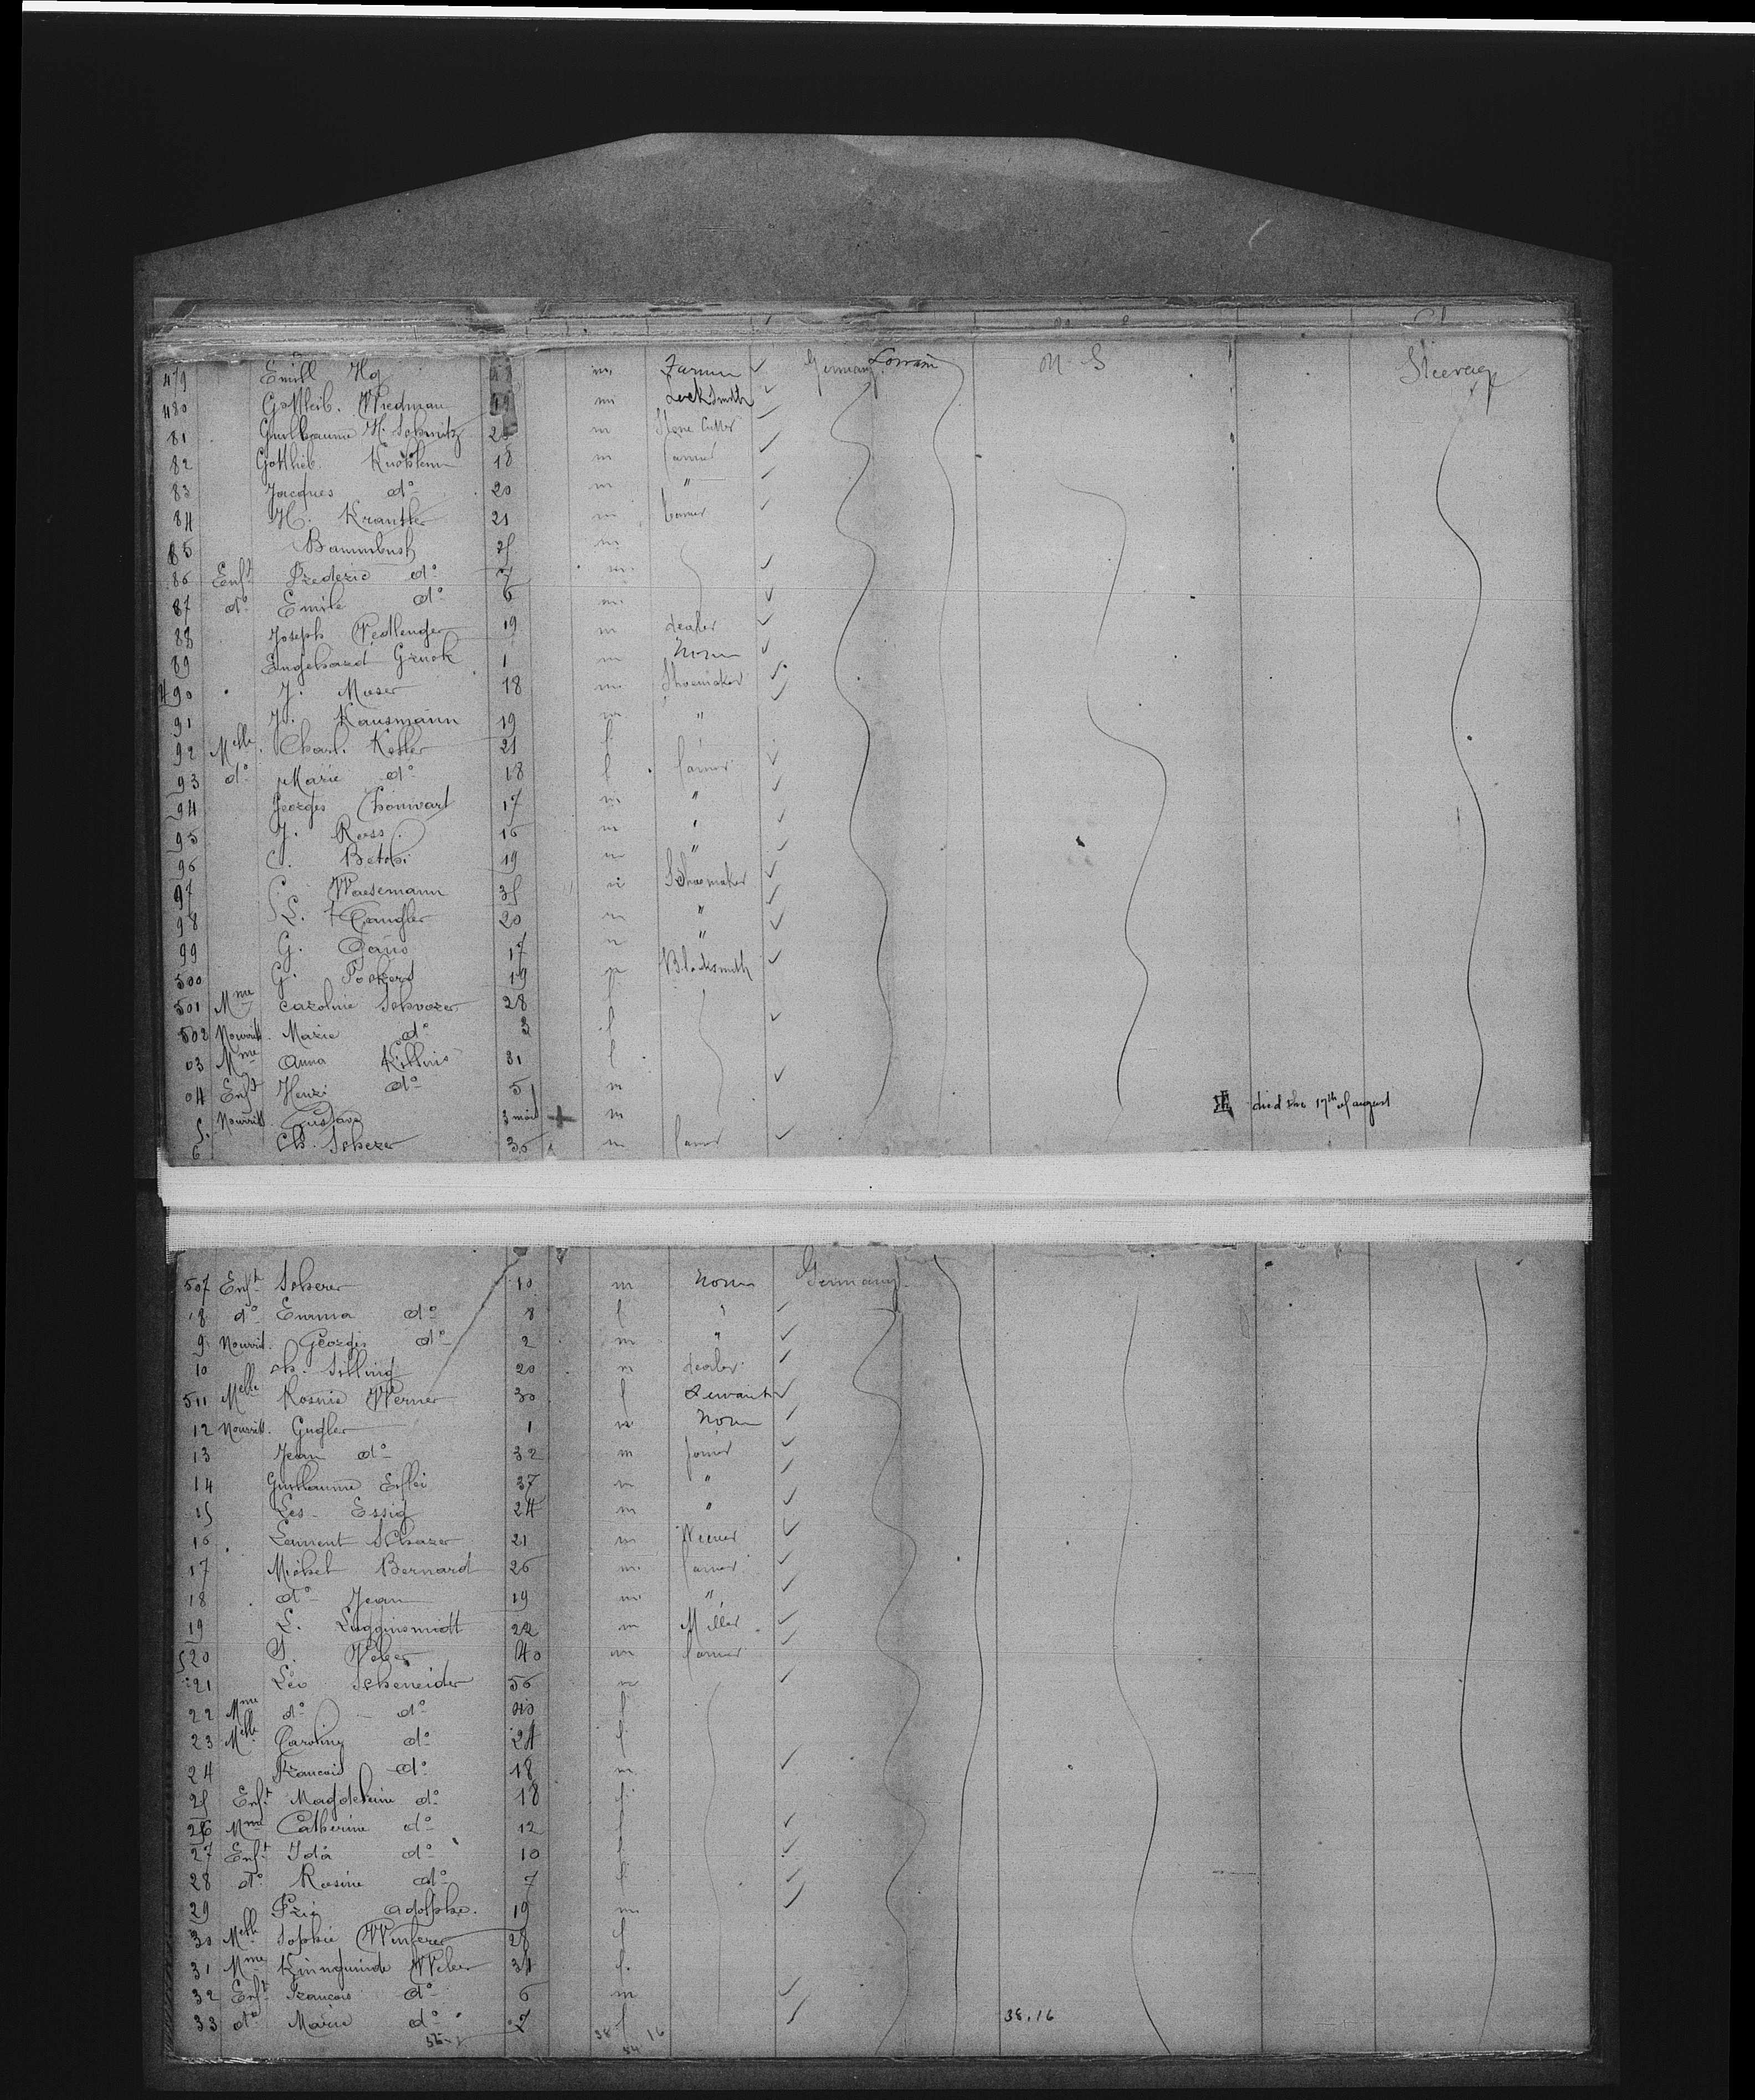 479 Emill Hg m. Farmer ✓ Germany Lorrain U S Steerage
480 Gottleib. Wiedman m Lock Smith ✓
81 Guillaume H. Schmitz 25 m Stone Cutter ✓
82 Gottlieb. 18 m farmer ✓
83 Jacques do 20 m " ✓
84 H. Krantler 21 m farmer ✓
85 Bammbush 25 m
86 Enft Frederic do 7 m. ✓
87 do Emile do 6 m. ✓
88 Joseph Wedlenger 19 m dealer ✓
89 Engelhard Gruck 1 m None ✓
490 J. Muser 18 m Shoemaker ✓
91 J. Hausmann 19 m " ✓
92 Melle Charl. Keller 21 f
93 do Marie do 18 f farmer ✓
94 Georges Chonwart 17 m " ✓
95 J. Ross 16 m " ✓
96 C. Betchi 19 m " ✓
97 Waesemann 35 m Shoemaker ✓
98 L. Tangler 20 m " ✓
99 G. 17 m " ✓
500 G. Pockerd 19 m Blacksmith ✓
501 Mme Caroline Schvorer 28 f
502 Nourriss. Marie do 3 f ✓
03 Mme Anna 31 f
04 Enft Henri do 5 m ✓
5. Nourriss. Gustave 3 mois + m died the 17th of august
6 Ch. Scherer 36 m farmer ✓
507 Enft Scherer 10 m None Germany
8 do Emma do 8 f " ✓
9 Nourris. Georges do 2 m " ✓
10 Ch. Silling 20 m dealer ✓
511 Melle Rosnie Werner 30 f Servant ✓
12 Nourriss. Gugler 1 m None ✓
13 Jean do 32 m farmer ✓
14 Guillaume 37 m " ✓
15 Les Essig 24 m " ✓
16 Laurent Scharer 21 m ✓
17 Michel Bernard 26 m. farmer ✓
18 do Jean 19 m. " ✓
19 L. Lugginsmidt 22 m Miller ✓
520 J. Weber 40 m farmer ✓
521 Léo Scheneider 56 m ✓
22 Mme do do 40 f
23 Melle Caroline do 24 f
24 Francois do 18 m ✓
25 Enft Magdeleine do 18 f
26 Mme Catherine do 12 f ✓
27 Enft Ida do 10 f ✓
28 do Rosine do 7 f ✓
29 Adolphe. 19 m ✓
30 Melle Sophie Winferer 28 f
31 Mme Kinnguinde Weber 34 f.
32 Enft Francois do 6 m ✓
33 do Marie do 2 f ✓ 38.16
38 16
54